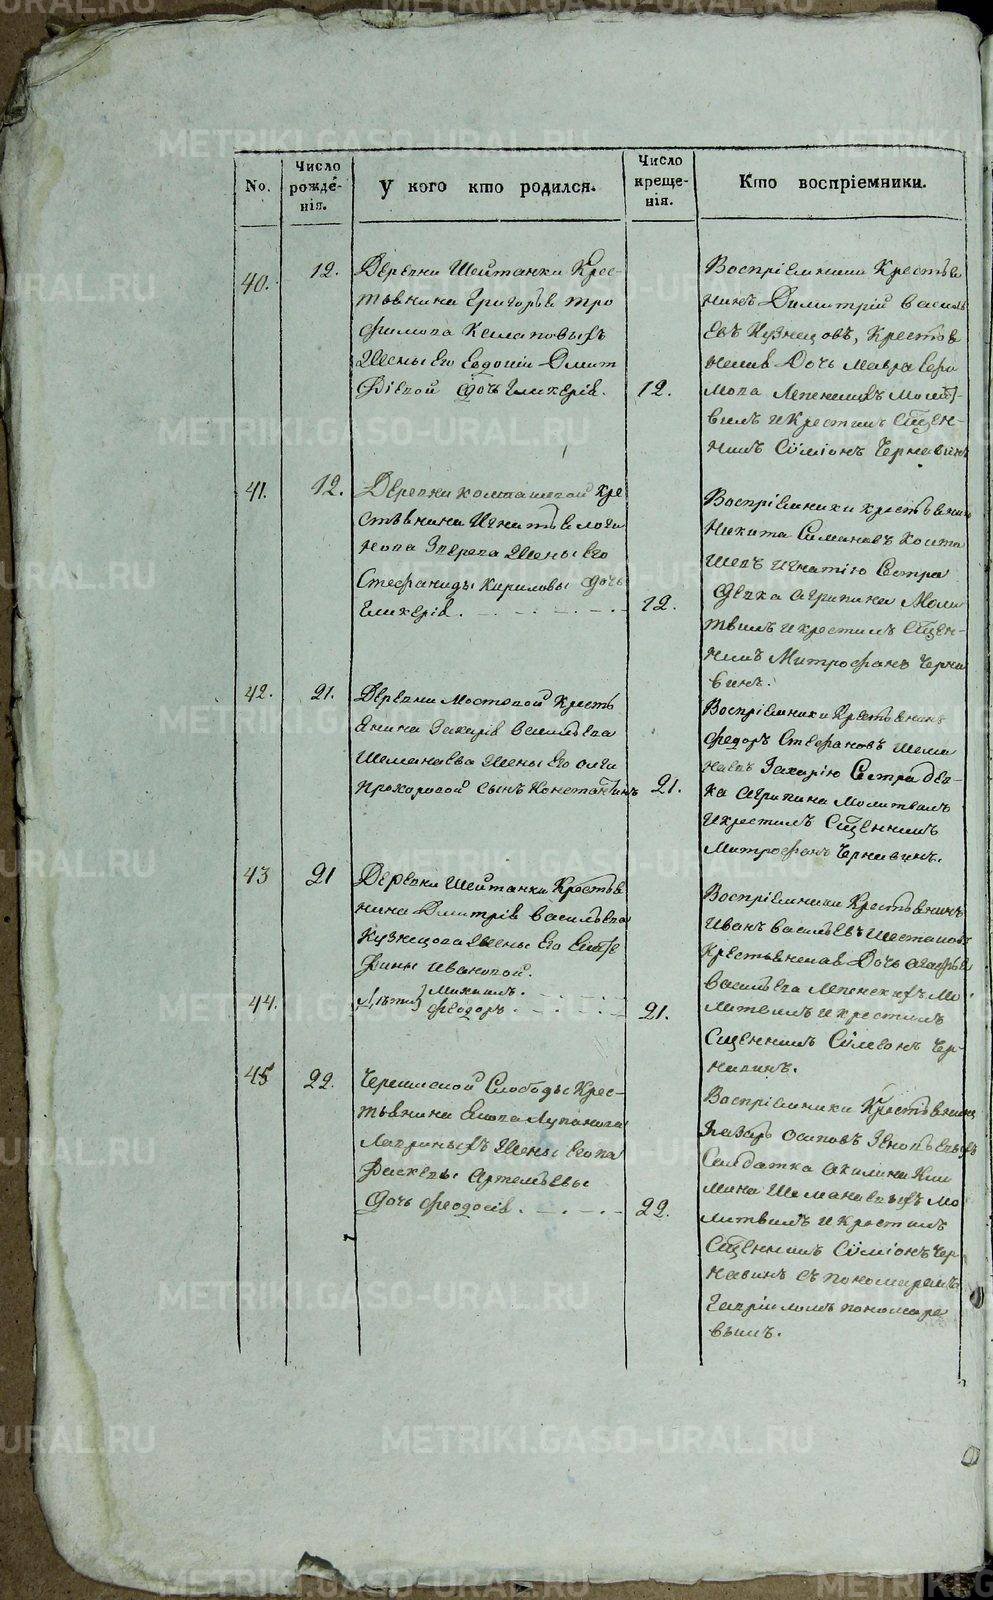 No.
Число
рожде-
нія.
У кого кто родился.
Число
креще-
нія.
Кто воспріемники.
40.
12.
Деревни Шейтанки Крес-
тьянина Григорья Тро
фимова
Жены Его Евдокіи Дмит
ріевой дочь Гликерія.
12.
Воспріемники Крестья
нинъ Димитрій Василь
евъ Кузнецовъ, Крестья
нская Дочь Мавра
молит-
вилъ и Крестилъ Сщен-
никъ Сѵміонъ Чернавинъ
41.
12.
Деревни Колташевой Кре
стьянина Игнатья Логи
нова Зверева Жены Его
Стефаниды Кириловы дочь
Гликерія.
12.
Воспріемники крестьянинъ
Никита Симановъ Колта
шевъ Игнатію Сестра
девка Агрипина Моли
твилъ и крестилъ Сщен-
никъ Митрофанъ Черна
винъ.
42.
21.
Деревни Мостовой Кресть
янина Захарія Васильева
Шеманаева Жены Его Олги
Прохоровой сынъ Константинъ
21.
Воспріемники Крестьянинъ
Федоръ Стефановъ Шема
наевъ Захарію Сестра дев-
ка Агрипина Молитвилъ
и крестилъ Сщенникъ
Митрофанъ Чернавинъ.
43
21
Деревни Шейтанки Крестья
нина Дмитрія Васильева
Кузнецова Жены Его
Ивановой.
44.
Дѣти } Михаилъ.
Феодоръ.
21.
Воспріемники Крестьянинъ
Иванъ Васильевъ
Крестьянская Дочь Агафья
Васильева мо
литвилъ и крестилъ
Сщенникъ Сѵмеонъ Чер-
навинъ.
45
22.
Черемиской Слободы Крес-
тьянина
Жены Его па
раскевы Артемьевы
дочь Феодосія.
22.
Воспріемники Крестьянинъ
Назаръ Осиповъ
Салдатка Акилина Кли
мина Шеманаевыхъ мо
литвилъ и крестилъ
Сщенникъ Сѵміонъ Чер
навинъ съ пономаремъ
Гавріиломъ пономаре
вымъ.
METRIKI.GASO-URAL.RU